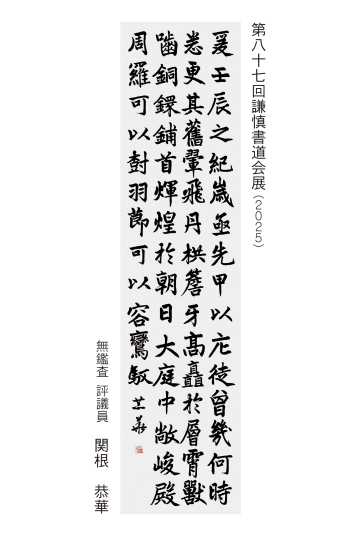 第八十七回謙慎書道会展（2025）
爰壬辰之紀歳亟先甲以庀徒曾幾何時
悉更其舊翬飛丹栱簷牙高矗於層霄獸
嚙銅鐶鋪首煇煌於朝日大庭中敞峻殿
周羅可以封羽莭可以容鸞馭 恭華
無鑑査 評議員 関根 恭華